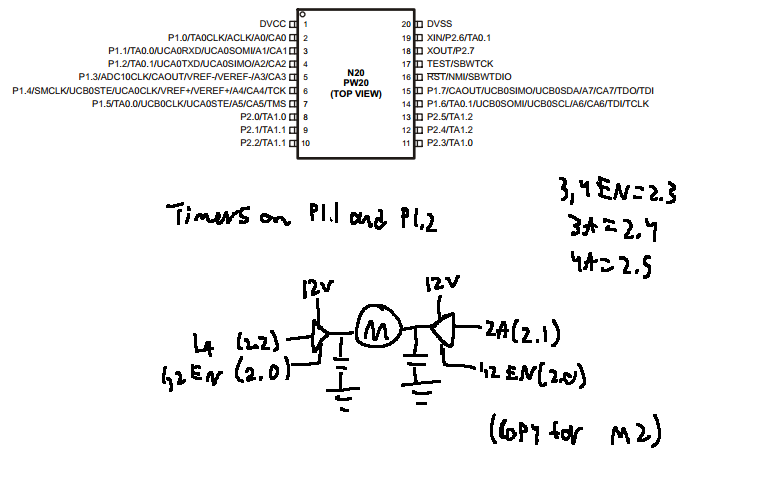 DVCC 1
P1.0/TA0CLK/ACLK/A0/CA0 2
P1.1/TA0.0/UCA0RXD/UCA0SOMI/A1/CA1 3
P1.2/TA0.1/UCA0TXD/UCA0SIMO/A2/CA2 4
P1.3/ADC10CLK/CAOUT/VREF-/VEREF-/A3/CA3 5
P1.4/SMCLK/UCB0STE/UCA0CLK/VREF+/VEREF+/A4/CA4/TCK 6
P1.5/TA0.0/UCB0CLK/UCA0STE/A5/CA5/TMS 7
P2.0/TA1.0 8
P2.1/TA1.1 9
P2.2/TA1.1 10
N20
PW20
(TOP VIEW)
20 DVSS
19 XIN/P2.6/TA0.1
18 XOUT/P2.7
17 TEST/SBWTCK
16 RST/NMI/SBWTDIO
15 P1.7/CAOUT/UCB0SIMO/UCB0SDA/A7/CA7/TDO/TDI
14 P1.6/TA0.1/UCB0SOMI/UCB0SCL/A6/CA6/TDI/TCLK
13 P2.5/TA1.2
12 P2.4/TA1.2
11 P2.3/TA1.0
Timers on P1.1 and P1.2
3,4 EN=2.3
3A=2.4
4A=2.5
12V
12V
M
(2.2)
2A(2.1)
1,2 EN (2.0)
1,2 EN(2.0)
(copy for M2)